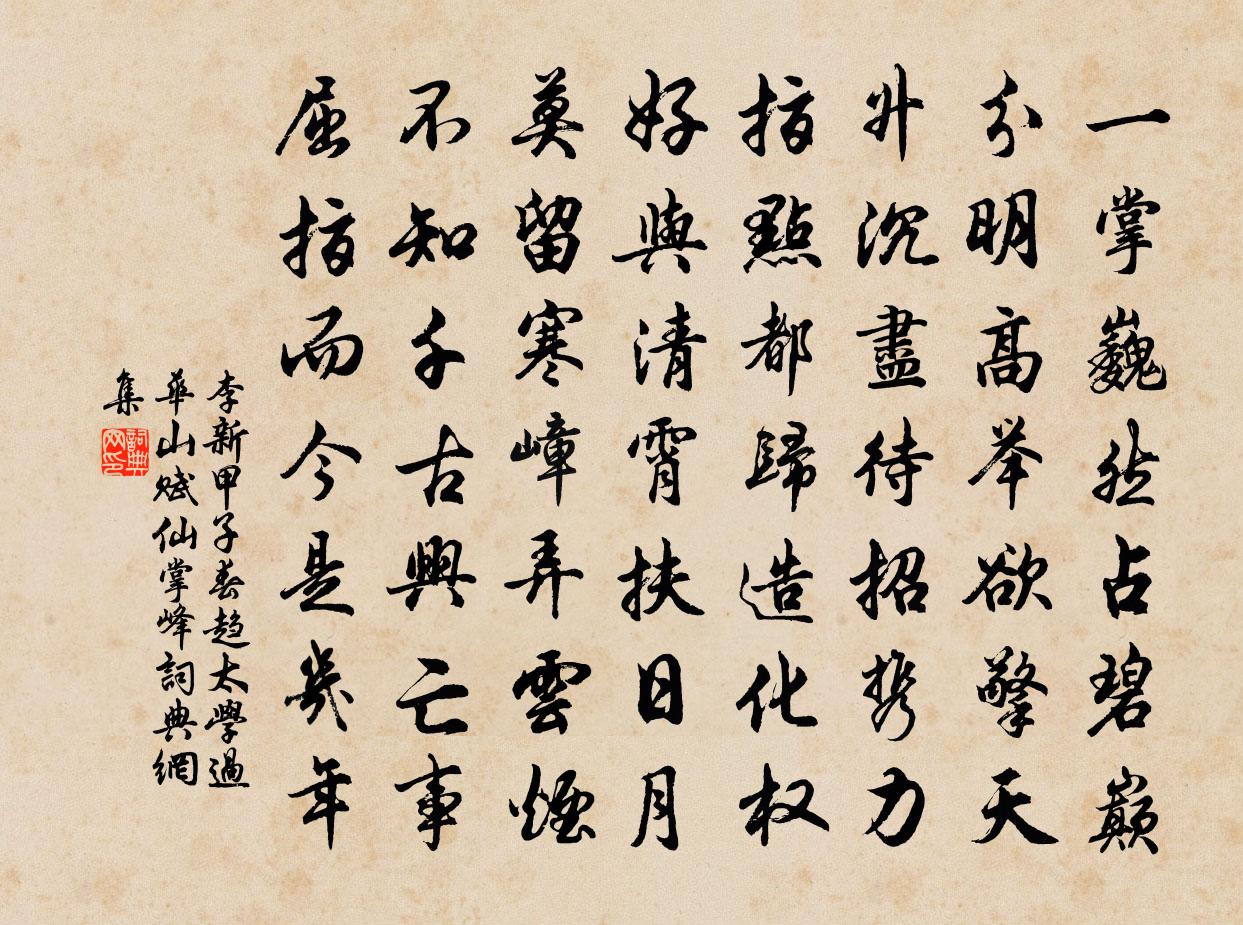 一掌巍然占碧巔
分明高举欲擎天
升沉盡待招携力
指點都歸造化权
好與清霄扶日月
莫留寒嶂弄雲煙
不知千古興亡事
屈指而今是幾年
李新甲子春趋太學過
華山赋仙掌峰詞典網
集
詞典
网印